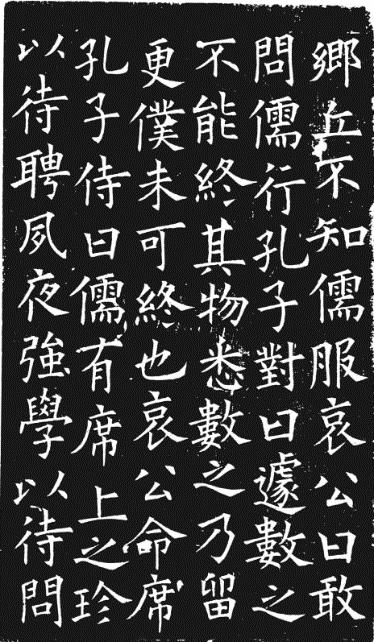 鄉丘不知儒服哀公曰敢
問儒行孔子對曰遽數之
不能終其物悉數之乃留
更僕未可終也哀公命席
孔子侍曰儒有席上之珍
以待聘夙夜強學以待問